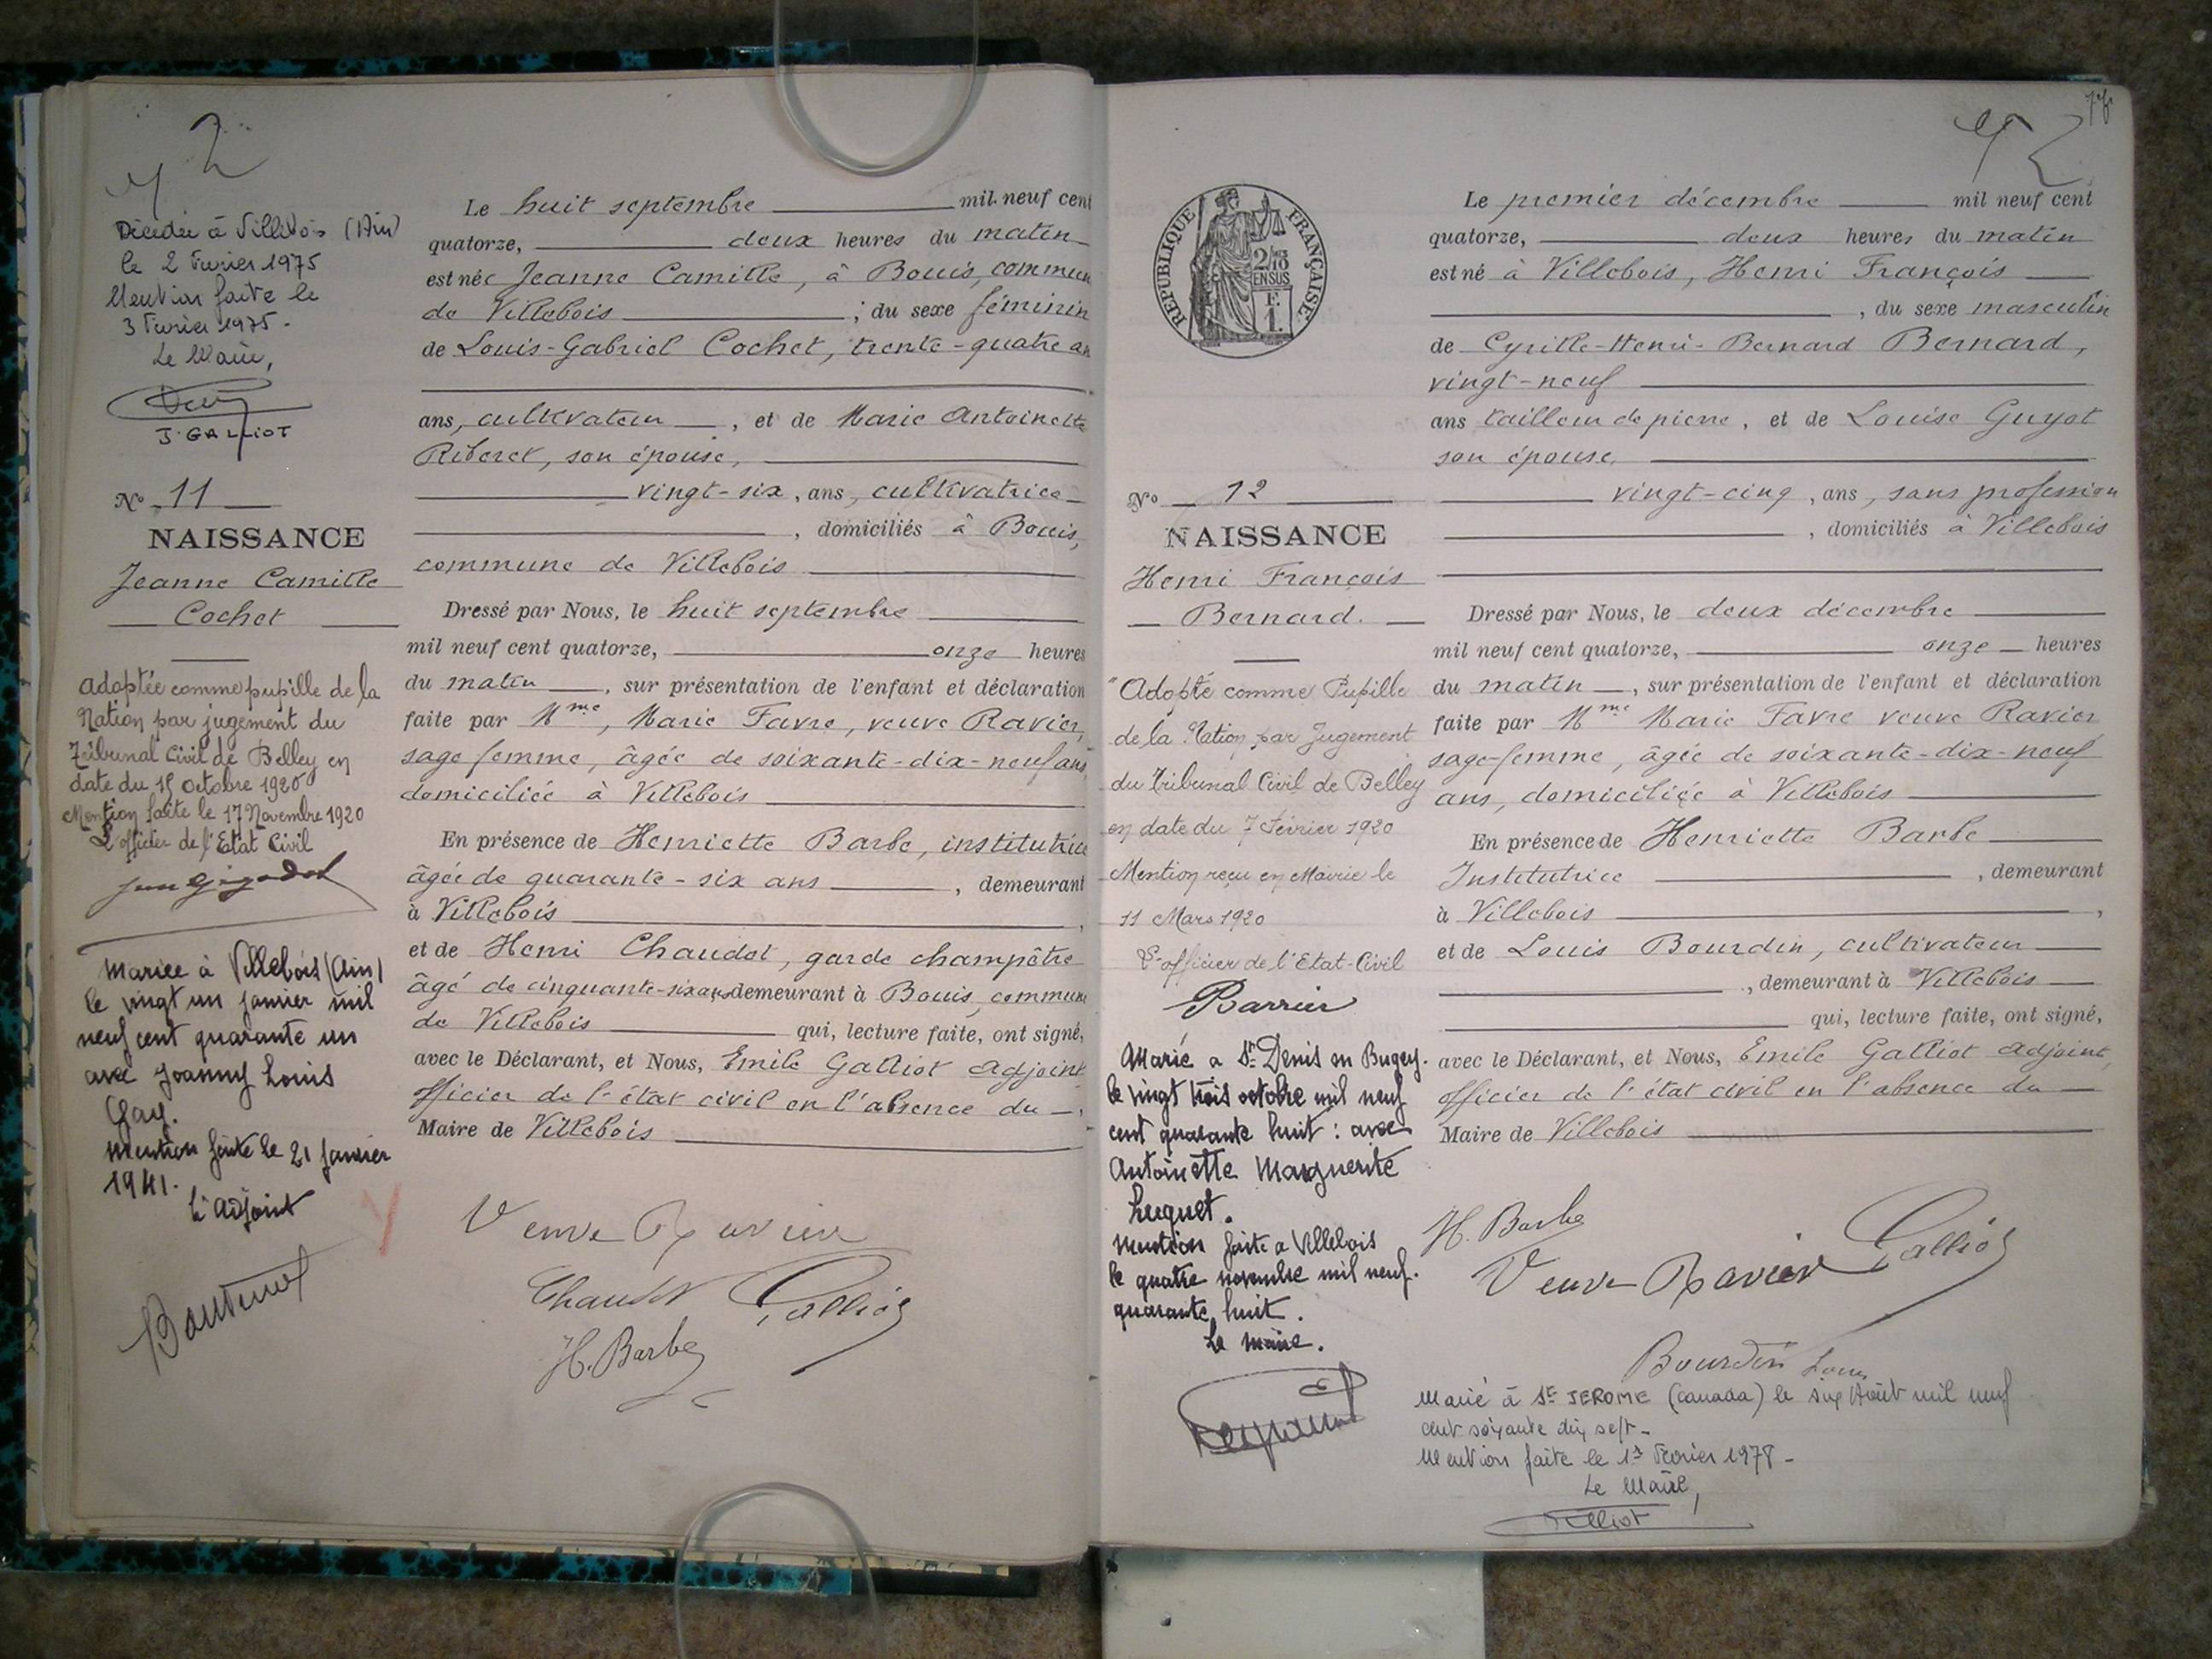 2
Décédée à Villebois (Ain)
le 2 Février 1975
Mention faite le
3 Février 1975 -
Le Maire,
J. GALLIOT
No 11
NAISSANCE
Jeanne Camille
Cochet
Adoptée comme pupille de la
Nation par jugement du
Tribunal Civil de Belley en
date du 15 Octobre 1920
Mention faite le 17 Novembre 1920
L'officier de l'Etat Civil
Mariée à Villebois (Ain)
le vingt un janvier mil
neuf cent quarante un
avec Joanny Louis
Gay.
Mention faite le 21 janvier
1941.
L'adjoint
Le huit septembre mil neuf cent
quatorze, deux heures du matin
est née Jeanne Camille, à Bouis, commune
de Villebois ; du sexe féminin
de Louis-Gabriel Cochet, trente-quatre an
ans, cultivateur, et de Marie Antoinette
Riberet, son épouse,
vingt-six, ans, cultivatrice
, domiciliés à Bouis,
commune de Villebois
Dressé par Nous, le huit septembre
mil neuf cent quatorze, onze heures
du matin, sur présentation de l'enfant et déclaration
faite par Mme, Marie Favre, veuve Ravier,
sage femme, âgée de soixante-dix-neuf ans,
domiciliée à Villebois
En présence de Henriette Barbe, institutrice
âgée de quarante-six ans, demeurant
à Villebois,
et de Henri Chaudot, garde champêtre
âgé de cinquante-six ans demeurant à Bouis, commune
de Villebois qui, lecture faite, ont signé,
avec le Déclarant, et Nous, Emile Galliot adjoint
officier de l'état civil en l'absence du
Maire de Villebois
Veuve Ravier
Chaudot Galliot
H. Barbe
2
REPUBLIQUE FRANÇAISE
2/10 EN SUS
F. 1.
No 12
NAISSANCE
Henri François
Bernard.
"Adopté comme Pupille
de la Nation par Jugement
du Tribunal Civil de Belley
en date du 7 Février 1920
Mention reçu en Mairie le
11 Mars 1920
L'officier de l'Etat-Civil
Barrier
Marié a St Denis en Bugey.
le vingt trois octobre mil neuf
cent quarante huit : avec
Antoinette Marguerite
Luquet.
Mention faite a Villebois
le quatre novembre mil neuf.
quarante huit.
Le maire.
Le premier décembre mil neuf cent
quatorze, deux heures du matin
est né à Villebois, Henri François
, du sexe masculin
de Cyrille-Henri-Bernard Bernard,
vingt-neuf
ans tailleur de pierre, et de Louise Guyot
son épouse,
vingt-cinq, ans, sans profession
, domiciliés à Villebois
Dressé par Nous, le deux décembre
mil neuf cent quatorze, onze heures
du matin, sur présentation de l'enfant et déclaration
faite par Mme Marie Favre veuve Ravier
sage-femme, âgée de soixante-dix-neuf
ans, domiciliée à Villebois
En présence de Henriette Barbe
Institutrice, demeurant
à Villebois,
et de Louis Bourdin, cultivateur
, demeurant à Villebois
qui, lecture faite, ont signé,
avec le Déclarant, et Nous, Emile Galliot adjoint,
officier de l'état civil en l'absence du
Maire de Villebois
H. Barbe
Veuve Ravier Galliot
Bourdin Louis
Marié à St JEROME (Canada) le six Août mil neuf
cent soixante dix sept -
Mention faite le 1er Février 1978 -
Le Maire,
Galliot